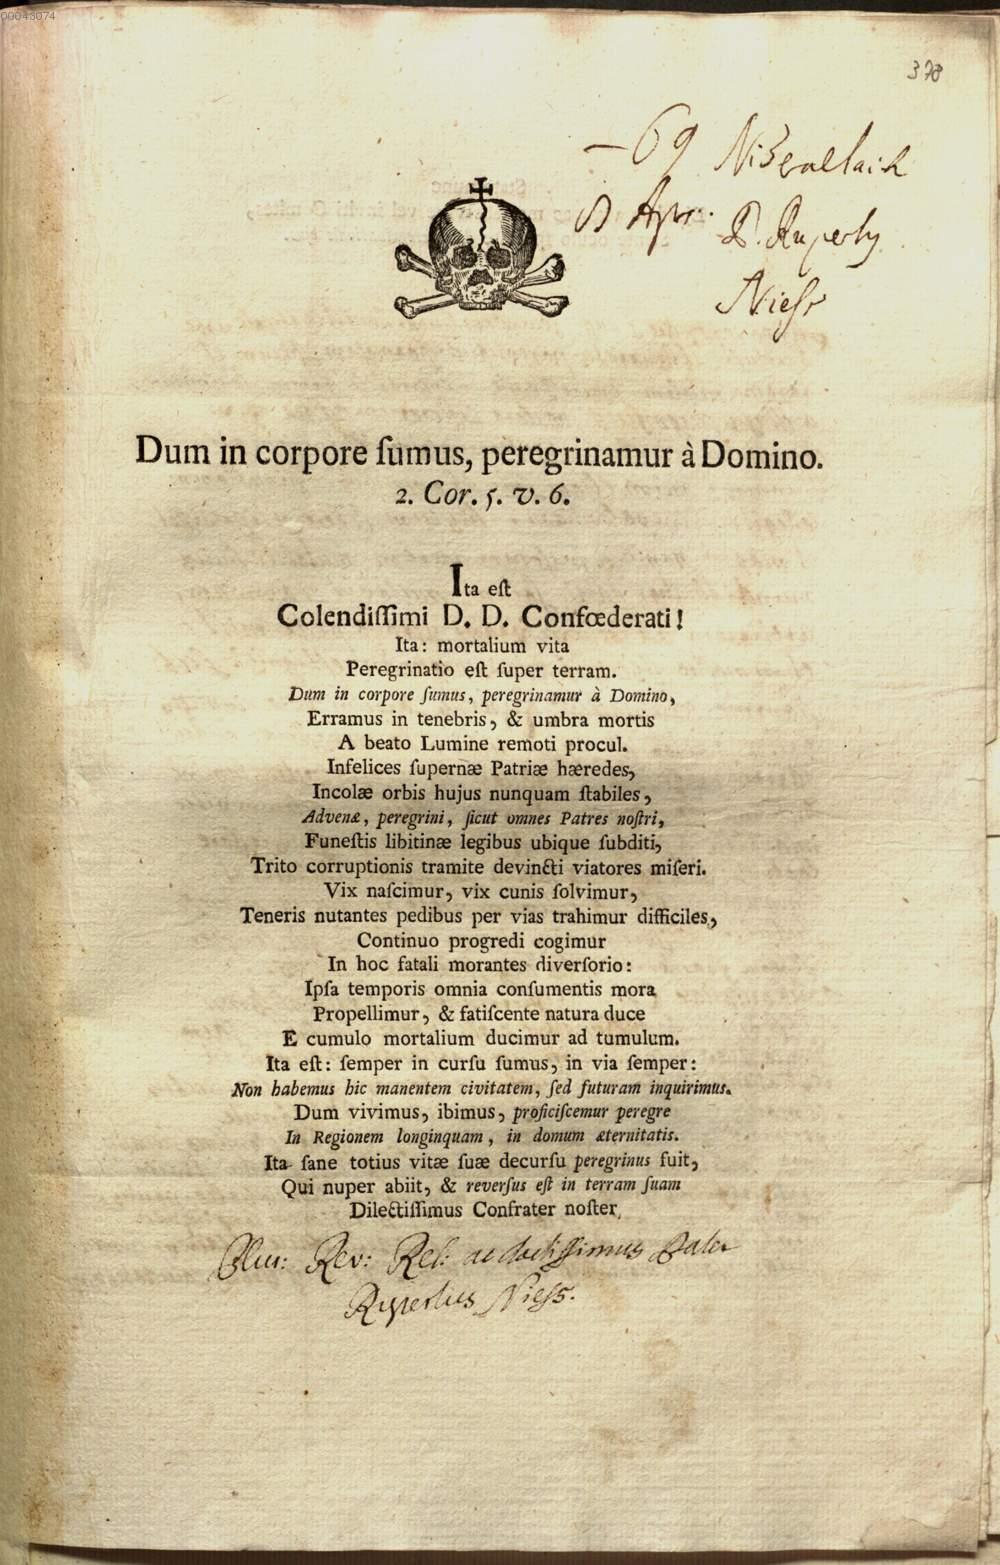 00043074
378
– 69 Nideraltaich
8 Apr. P. Ruperty
Niess
Dum in corpore ſumus, peregrinamur à Domino.
2. Cor. 5. v. 6.
Ita eſt
Colendiſſimi D. D. Confœderati!
Ita: mortalium vita
Peregrinatio eſt ſuper terram.
Dum in corpore ſumus, peregrinamur à Domino,
Erramus in tenebris, & umbra mortis
A beato Lumine remoti procul.
Infelices ſupernæ Patriæ hæredes,
Incolæ orbis hujus nunquam ſtabiles,
Advenæ, peregrini, ſicut omnes Patres noſtri,
Funeſtis libitinæ legibus ubique ſubditi,
Trito corruptionis tramite devincti viatores miſeri.
Vix naſcimur, vix cunis ſolvimur,
Teneris nutantes pedibus per vias trahimur difficiles,
Continuo progredi cogimur
In hoc fatali morantes diverſorio:
Ipſa temporis omnia conſumentis mora
Propellimur, & fatiſcente natura duce
E cumulo mortalium ducimur ad tumulum.
Ita eſt: ſemper in curſu ſumus, in via ſemper:
Non habemus hic manentem civitatem, ſed futuram inquirimus.
Dum vivimus, ibimus, proficiſcemur peregre
In Regionem longinquam, in domum æternitatis.
Ita ſane totius vitæ ſuæ decurſu peregrinus fuit,
Qui nuper abiit, & reverſus eſt in terram ſuam
Dilectiſſimus Confrater noſter
Rev: Rel: ac doctissimus Pater
Rupertus Niess.